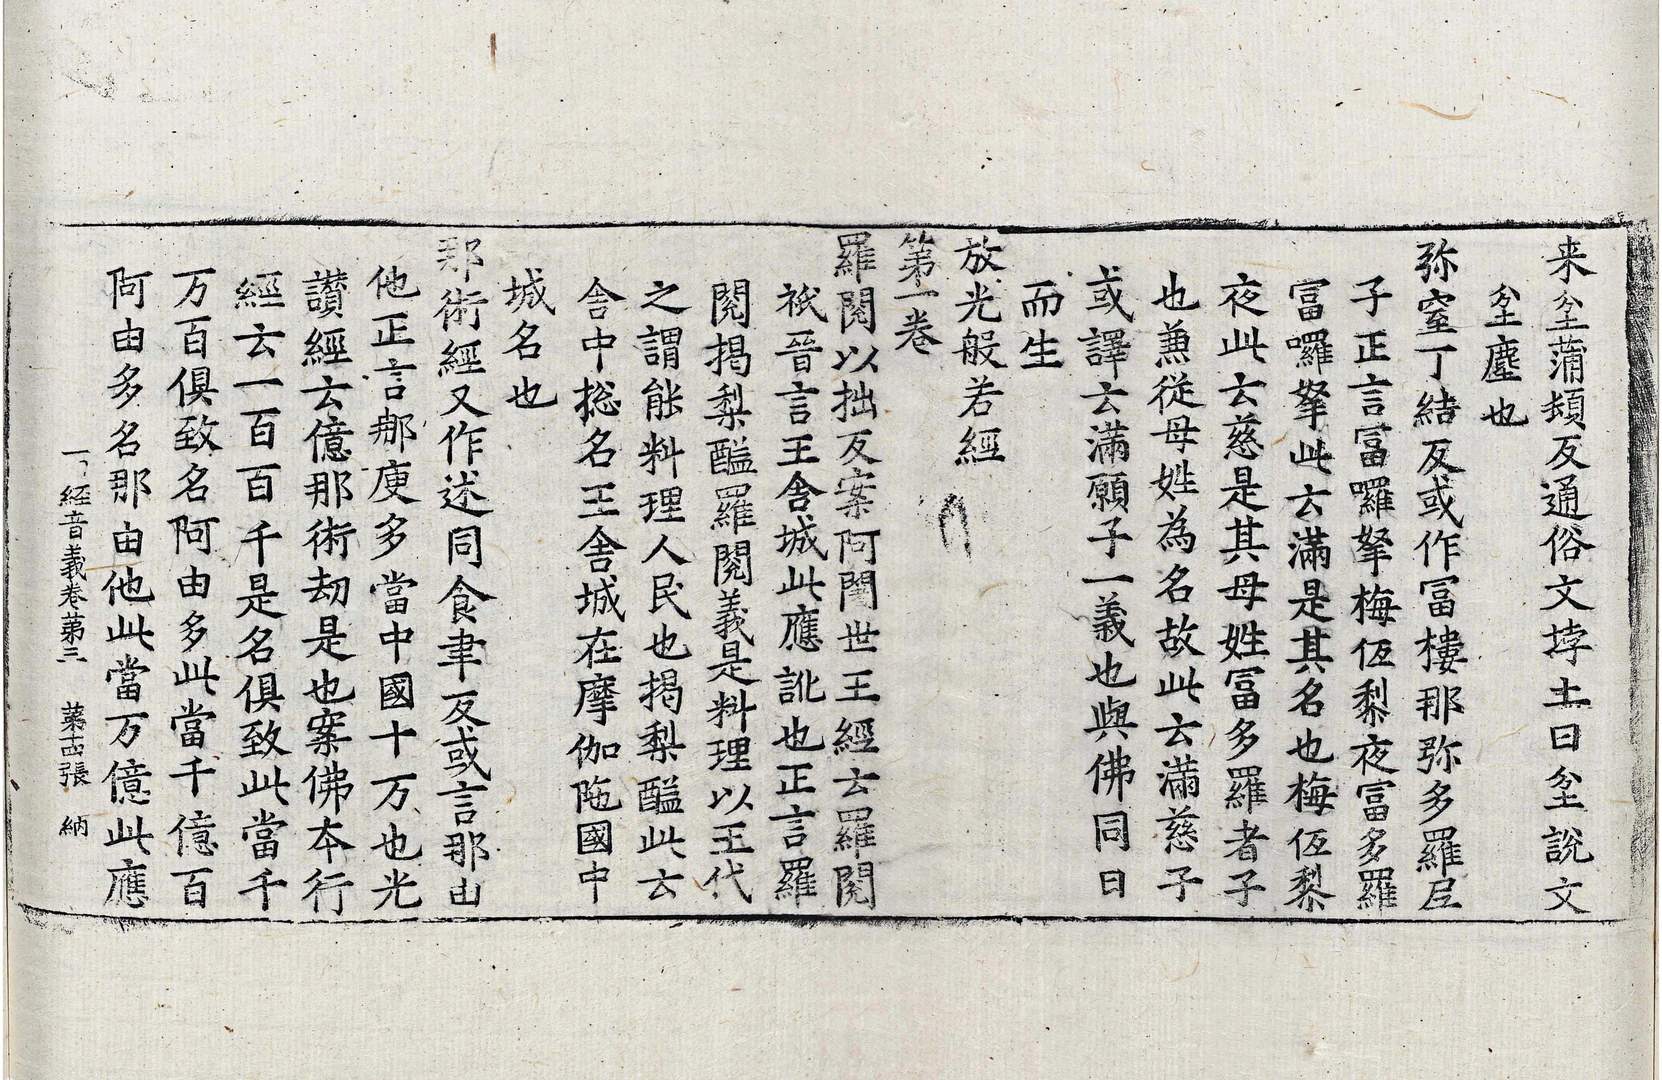 来坌蒲頻反通俗文㘄土曰坌說文
坌塵也
弥窒丁結反或作冨樓那弥多羅尼
子正言冨囉拏梅佢梨夜冨多羅
冨囉拏此云滿是其名也梅佢梨
夜此云慈是其母姓冨多羅者子
也兼從母姓為名故此云滿慈子
或譯云滿願子一義也與佛同日
而生
放光般若經
第一卷
羅閱以拙反案阿闍世王經云羅閱
祇晉言王舍城此應訛也正言羅
閱揭梨醯羅閱義是料理以王代
之謂能料理人民也揭梨醯此云
舍中捴名王舍城在摩伽陁國中
城名也
那術經文作述同食聿反或言那由
他正言那庾多當中國十万也光
讃經云億那術劫是也案佛本行
經云一百百千是名俱致此當千
万百俱致名阿由多此當千億百
阿由多名那由他此當万億此應
一切經音義卷第三 第十四張 納